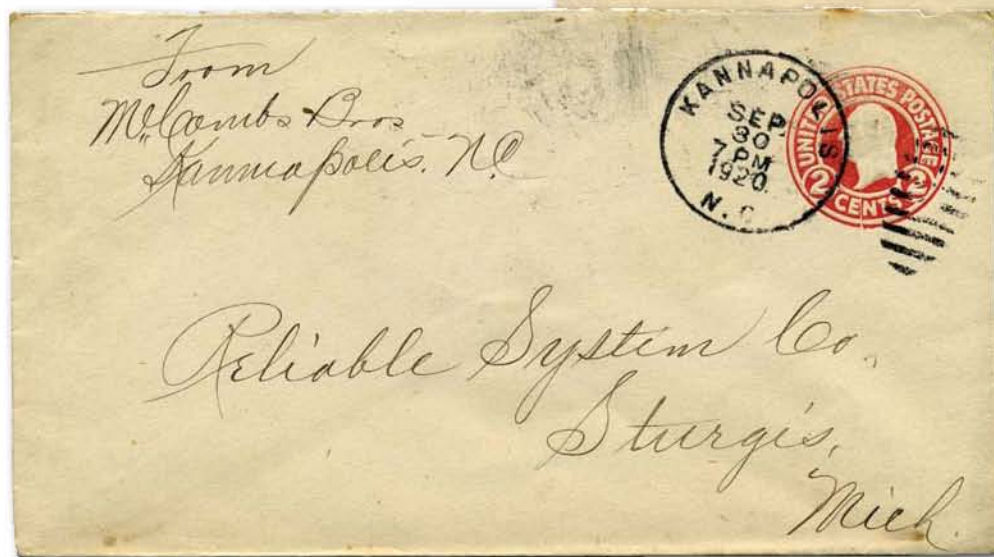 From
McCombs Bros
Kannapolis. N.C
KANNAPOLIS
SEP
30
7 PM
1920.
N.C.
UNITED STATES POSTAGE
2 CENTS 2
Reliable System Co.
Sturgis,
Mich.